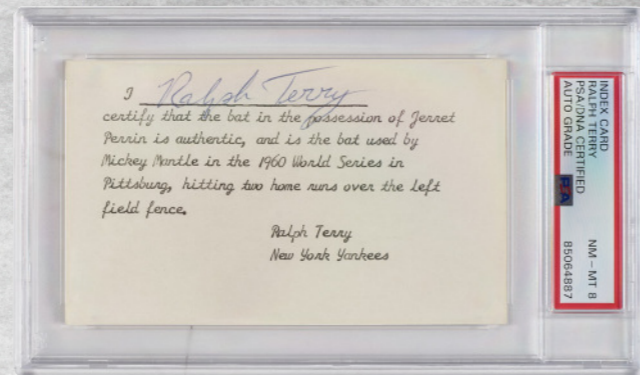 I Ralph Terry
certify that the bat in the possession of Jerret
Perrin is authentic, and is the bat used by
Mickey Mantle in the 1960 World Series in
Pittsburg, hitting two home runs over the left
field fence.
Ralph Terry
New York Yankees
INDEX CARD
RALPH TERRY
PSA/DNA CERTIFIED
AUTO GRADE NM-MT 8
PSA 85064887